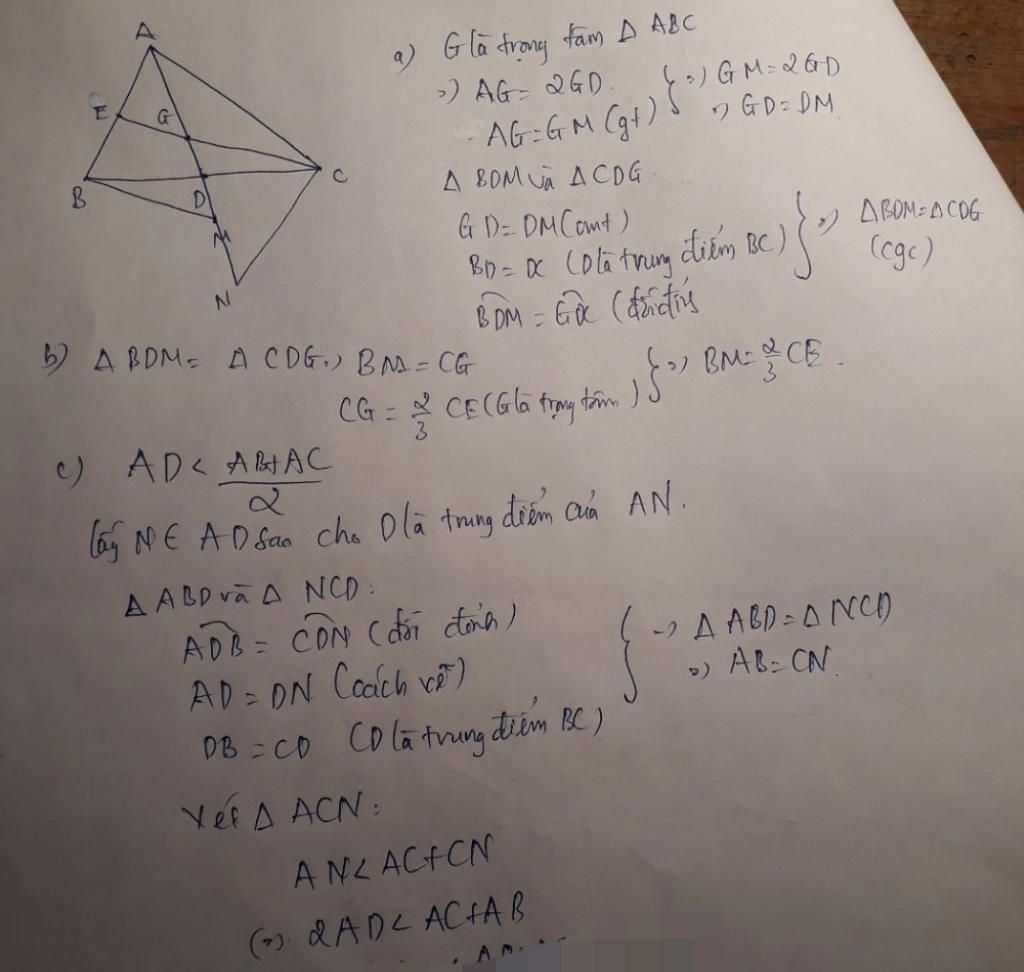 A
E
G
B
D
C
M
N
a) G là trọng tâm Δ ABC
=) AG = 2GD.
- AG = GM (gt) } =) GM = 2GD
=) GD = DM
Δ BDM và Δ CDG
GD = DM (cmt)
BD = DC (D là trung điểm BC) } =) ΔBDM = ΔCDG
(cgc)
BDM = GDC (đối đỉnh
b) Δ BDM = Δ CDG =) BM = CG
CG = 2/3 CE (G là trọng tâm) } =) BM = 2/3 CE.
c) AD < (AB+AC)/2
lấy N ∈ AD sao cho D là trung điểm của AN.
Δ ABD và Δ NCD:
ADB = CDN (đối đỉnh) { -) Δ ABD = Δ NCD
AD = DN (cách vẽ) =) AB = CN.
DB = CD (D là trung điểm BC)
Xét Δ ACN:
AN < AC + CN
(=) 2AD < AC + AB